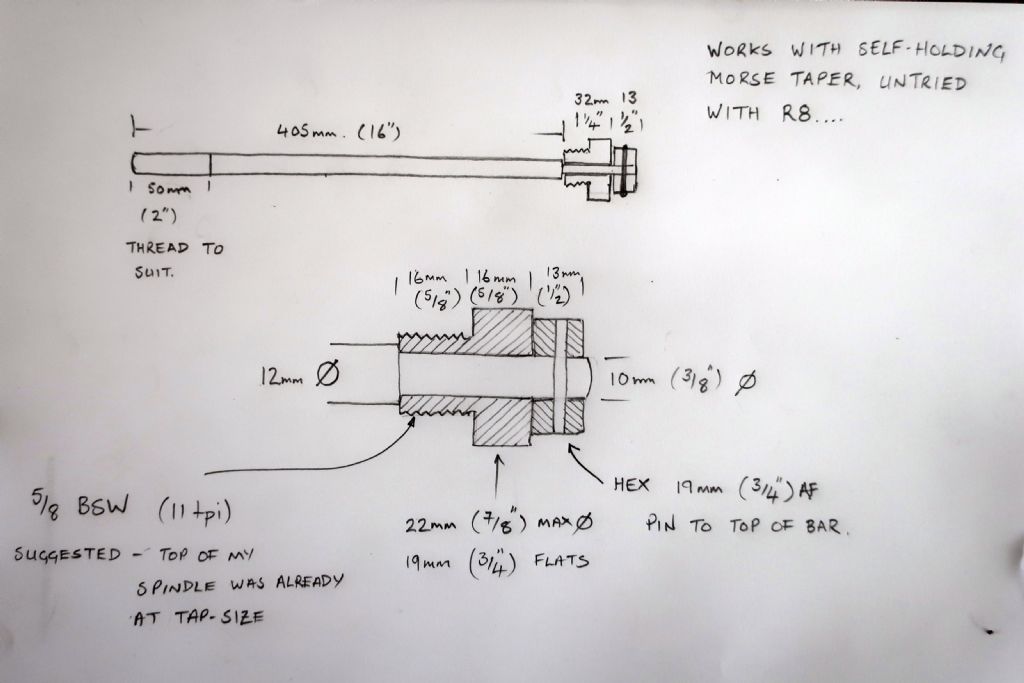 WORKS WITH SELF-HOLDING
MORSE TAPER, UNTRIED
WITH R8....
405mm. (16")
32mm 13
1¼" ½"
50mm
(2")
THREAD TO
SUIT.
16mm 16mm 13mm
(5/8") (5/8") (½")
12mm Ø
10mm (3/8") Ø
5/8 BSW (11 tpi)
SUGGESTED - TOP OF MY
SPINDLE WAS ALREADY
AT TAP-SIZE
22mm (7/8") MAX Ø
19mm (3/4") FLATS
HEX 19mm (3/4") AF
PIN TO TOP OF BAR.